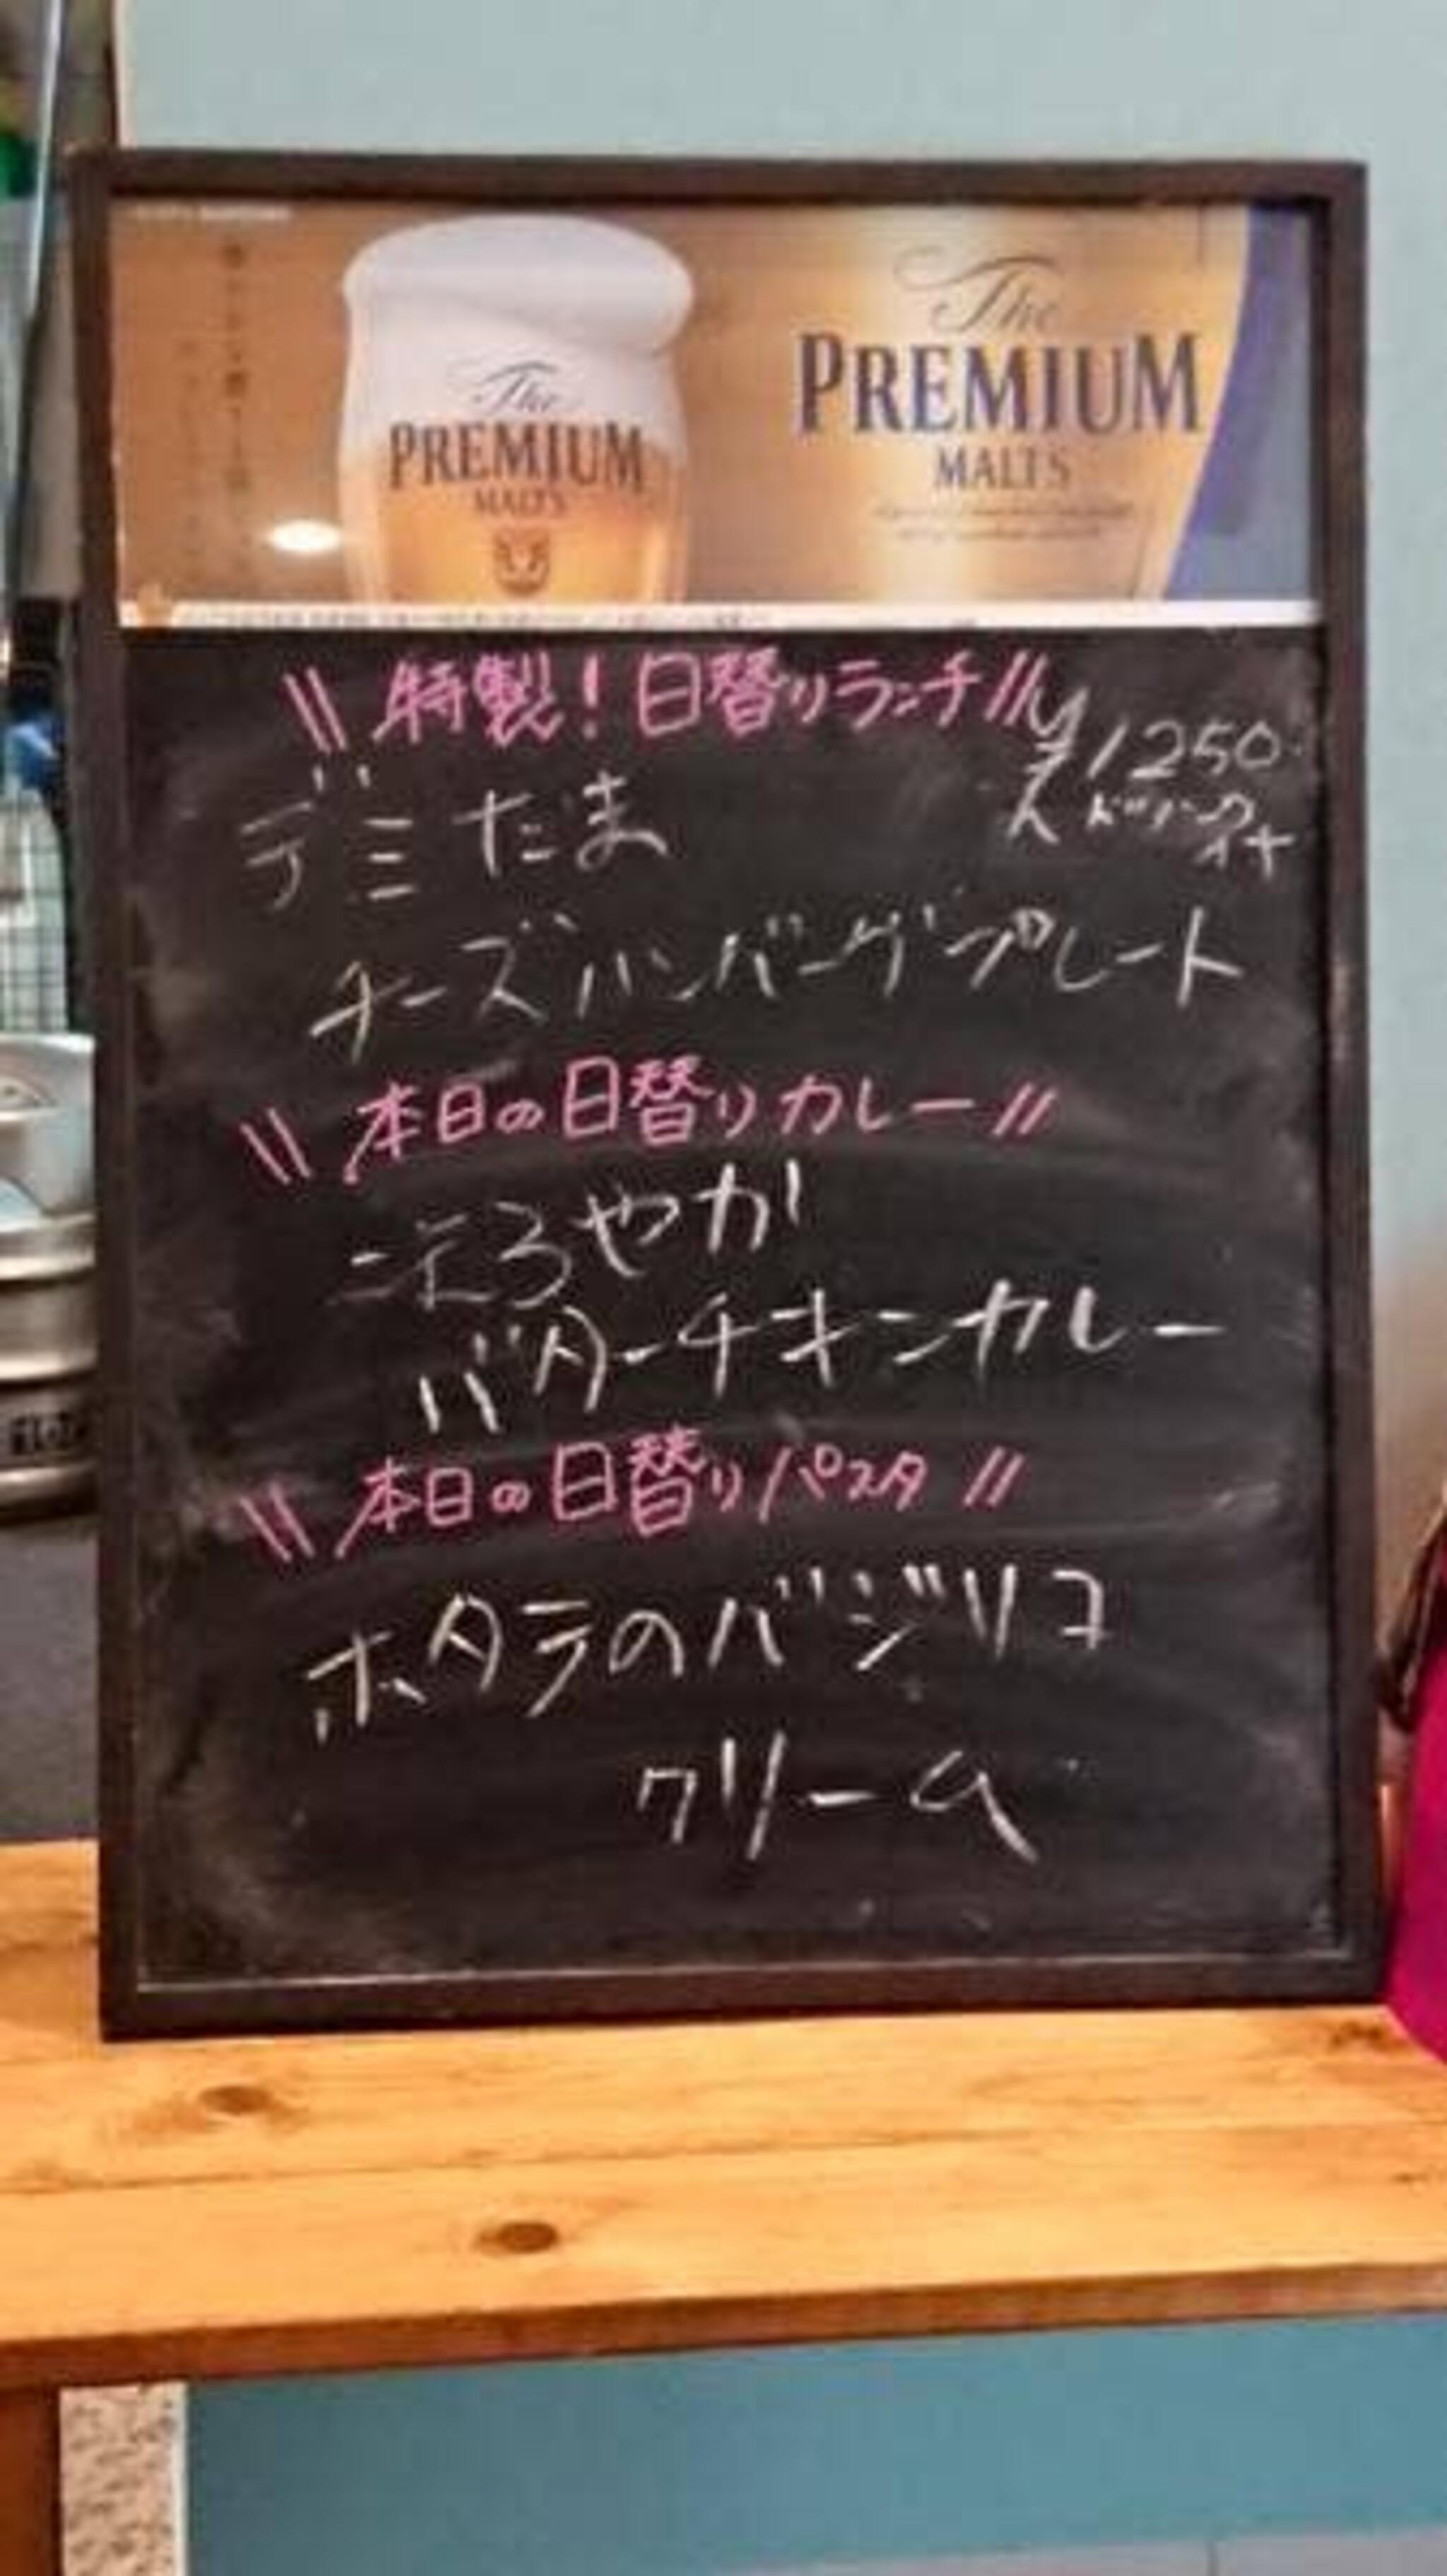 The
PREMIUM
MALT'S
The
PREMIUM
MALT'S
\\ 特製！日替りランチ //
¥1250
ドリンク付
デミたま
チーズハンバーグプレート
\\ 本日の日替りカレー //
まろやか
バターチキンカレー
\\ 本日の日替りパスタ //
ホタテのバジリコ
クリーム